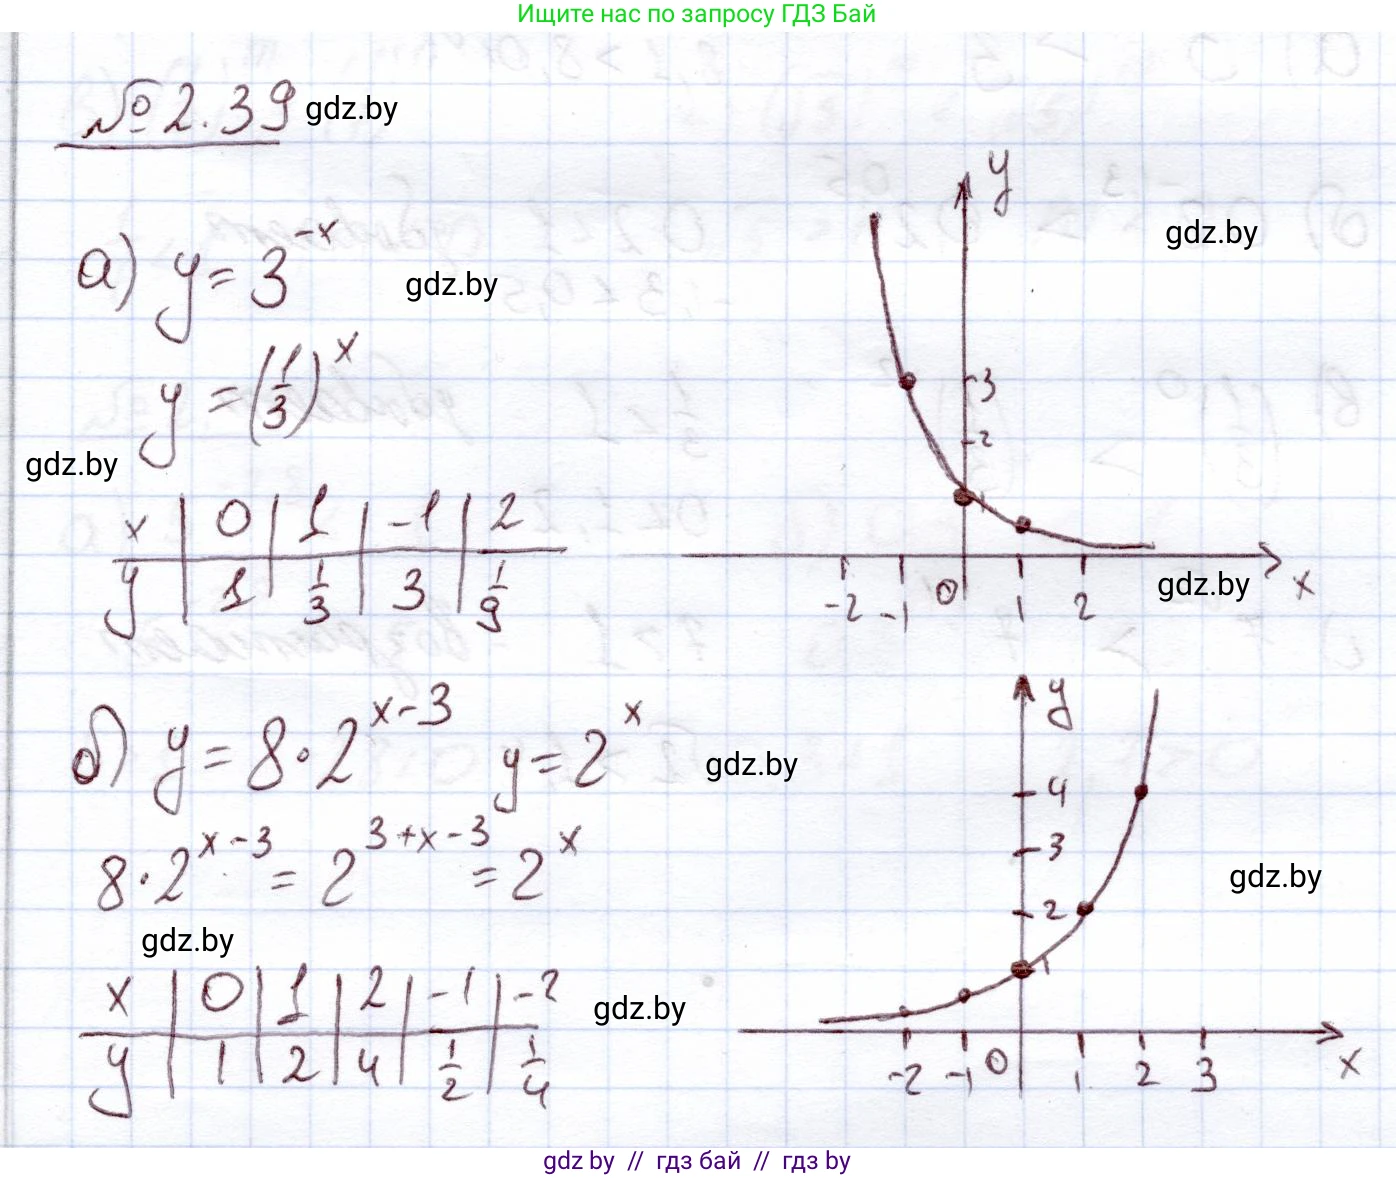 Ищите нас по запросу ГДЗ Бай
№ 2.39 gdz.by
а) y = 3^{-x} gdz.by
y = (1/3)^x
gdz.by
x | 0 | 1 | -1 | 2
y | 1 | 1/3 | 3 | 1/9
y
gdz.by
3
2
1
-2 -1 0 1 2 x
gdz.by
б) y = 8·2^{x-3} y = 2^x gdz.by
8·2^{x-3} = 2^{3+x-3} = 2^x
gdz.by
x | 0 | 1 | 2 | -1 | -2
y | 1 | 2 | 4 | 1/2 | 1/4
gdz.by
y
4
3
gdz.by
2
1
-2 -1 0 1 2 3 x
gdz by // гдз бай // гдз by